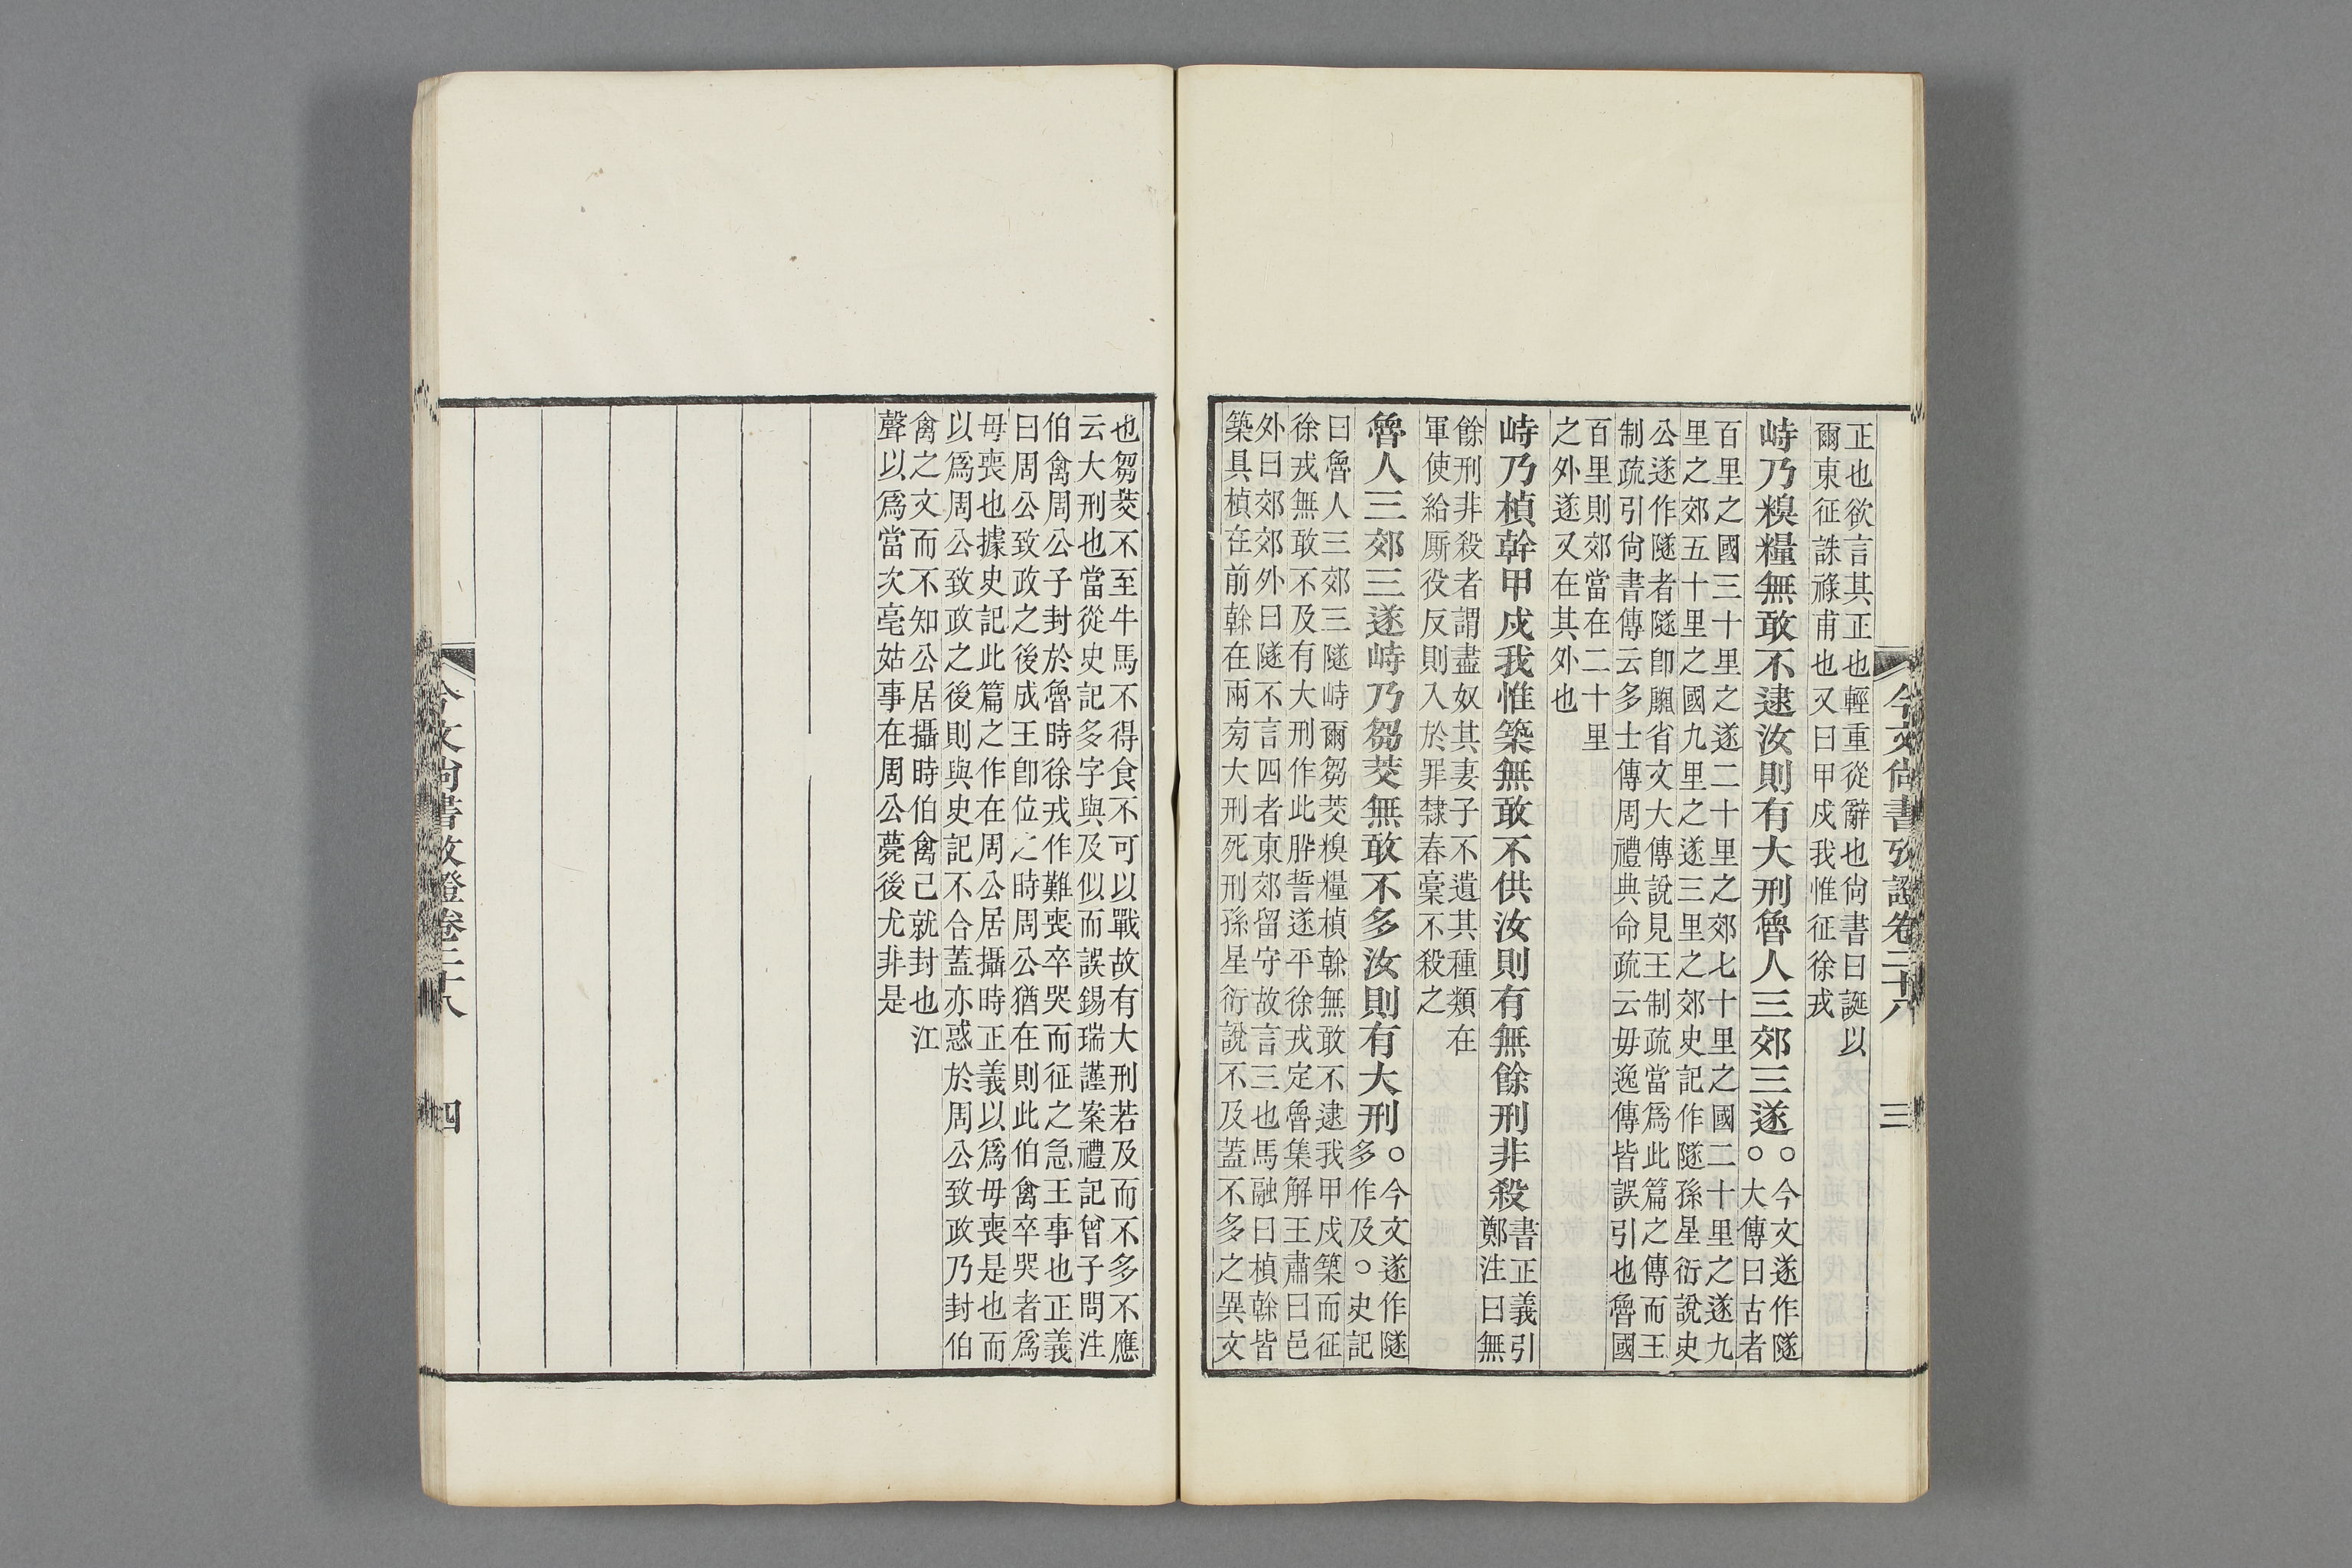 今文尚書攷證卷二十八 三
正也欲言其正也輕重從辭也尙書曰誕以
爾東征誅祿甫也又曰甲戍我惟征徐戎
峙乃糗糧無敢不逮汝則有大刑魯人三郊三遂○今文遂作隧
○大傳曰古者
百里之國三十里之遂二十里之郊七十里之國二十里之遂九
里之郊五十里之國九里之遂三里之郊史記作隧孫星衍說史
公遂作隧者隧卽䢵省文大傳說見王制疏當爲此篇之傳而王
制疏引尙書傳云多士傳周禮典命疏云毋逸傳皆誤引也魯國
百里則郊當在二十里
之外遂又在其外也
峙乃楨幹甲戍我惟築無敢不供汝則有無餘刑非殺書正義引
鄭注曰無
餘刑非殺者謂盡奴其妻子不遺其種類在
軍使給厮役反則入於罪隸舂稾不殺之
魯人三郊三遂峙乃芻茭無敢不多汝則有大刑○今文遂作隧
多作及○史記
曰魯人三郊三隧峙爾芻茭糗糧楨榦無敢不逮我甲戍築而征
徐戎無敢不及有大刑作此肸誓遂平徐戎定魯集解王肅曰邑
外曰郊郊外曰隧不言四者東郊留守故言三也馬融曰楨榦皆
築具楨在前榦在兩旁大刑死刑孫星衍說不及蓋不多之異文
也芻茭不至牛馬不得食不可以戰故有大刑若及而不多不應
云大刑也當從史記多字與及似而誤錫瑞謹案禮記曾子問注
伯禽周公子封於魯時徐戎作難喪卒哭而征之急王事也正義
曰周公致政之後成王卽位之時周公猶在則此伯禽卒哭者爲
毋喪也據史記此篇之作在周公居攝時正義以爲毋喪是也而
以爲周公致政之後則與史記不合蓋亦惑於周公致政乃封伯
禽之文而不知公居攝時伯禽已就封也江
聲以爲當次亳姑事在周公薨後尤非是
今文尙書攷證卷二十八 四